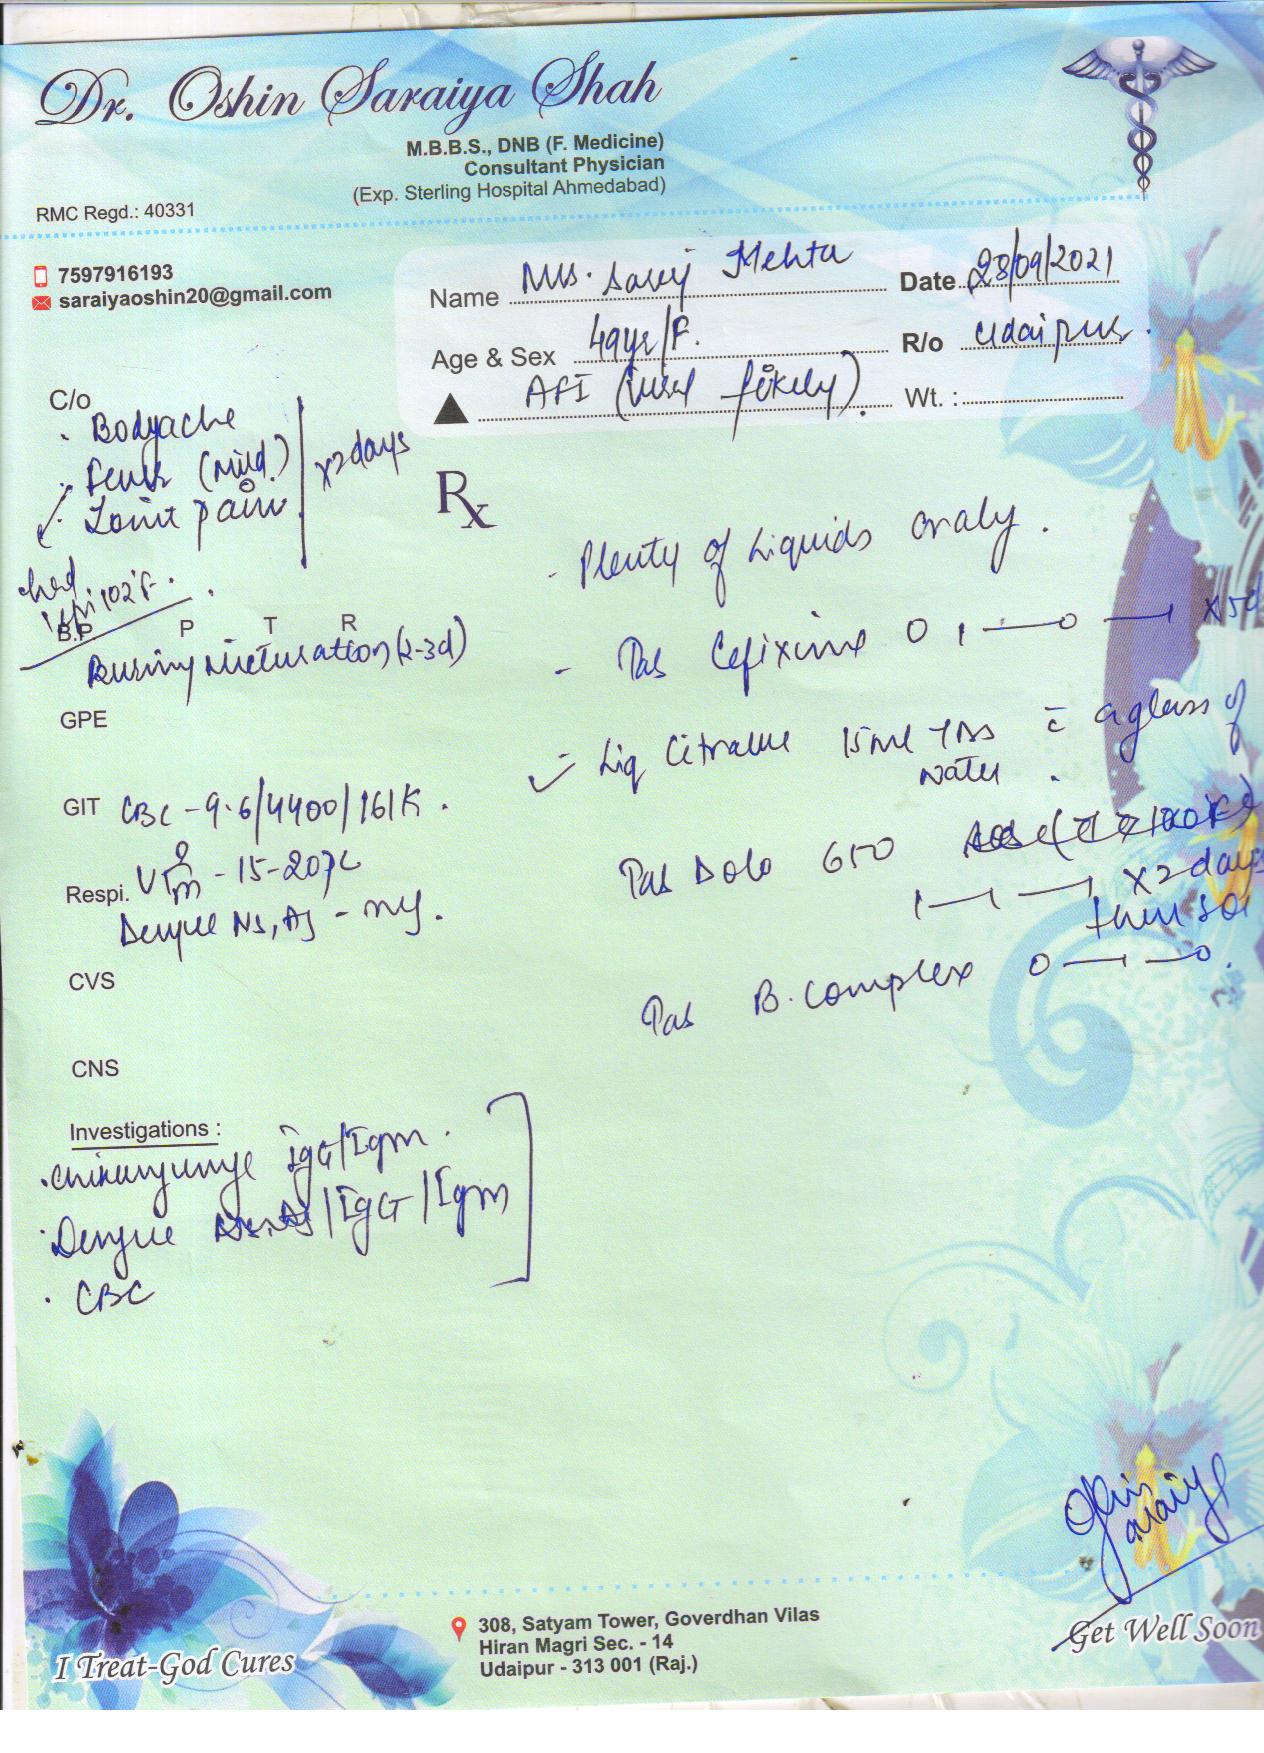 Dr. Oshin Saraiya Shah
M.B.B.S., DNB (F. Medicine)
Consultant Physician
(Exp. Sterling Hospital Ahmedabad)
RMC Regd.: 40331
7597916193
saraiyaoshin20@gmail.com
Name Mrs. Saroj Mehta Date 28/09/2021
Age & Sex 49yr/F. R/o Udaipur.
AFI ( likely). Wt. :
C/o
. Bodyache
. Fever (Mild.)
. Joint pain
x2days
102°F.
B.P P T R
Burning Micturation (2-3d)
GPE
GIT CBC - 9.6/4400/161K.
Respi. - 15-20
Dengue NS1 Ag -
CVS
CNS
Rx
- Plenty of Liquids oraly.
- Tab Cefixime O 1—o —
Liq Citralue 15ml TDS c̄ a glass of
water.
Tab Dolo 650
1—1—1 x2days
then SOS
Tab B.complex O—1—o.
Investigations :
. Chikungunye IgG/Igm.
. Dengue /IgG/Igm
. CBC
I Treat-God Cures
308, Satyam Tower, Goverdhan Vilas
Hiran Magri Sec. - 14
Udaipur - 313 001 (Raj.)
Get Well Soon